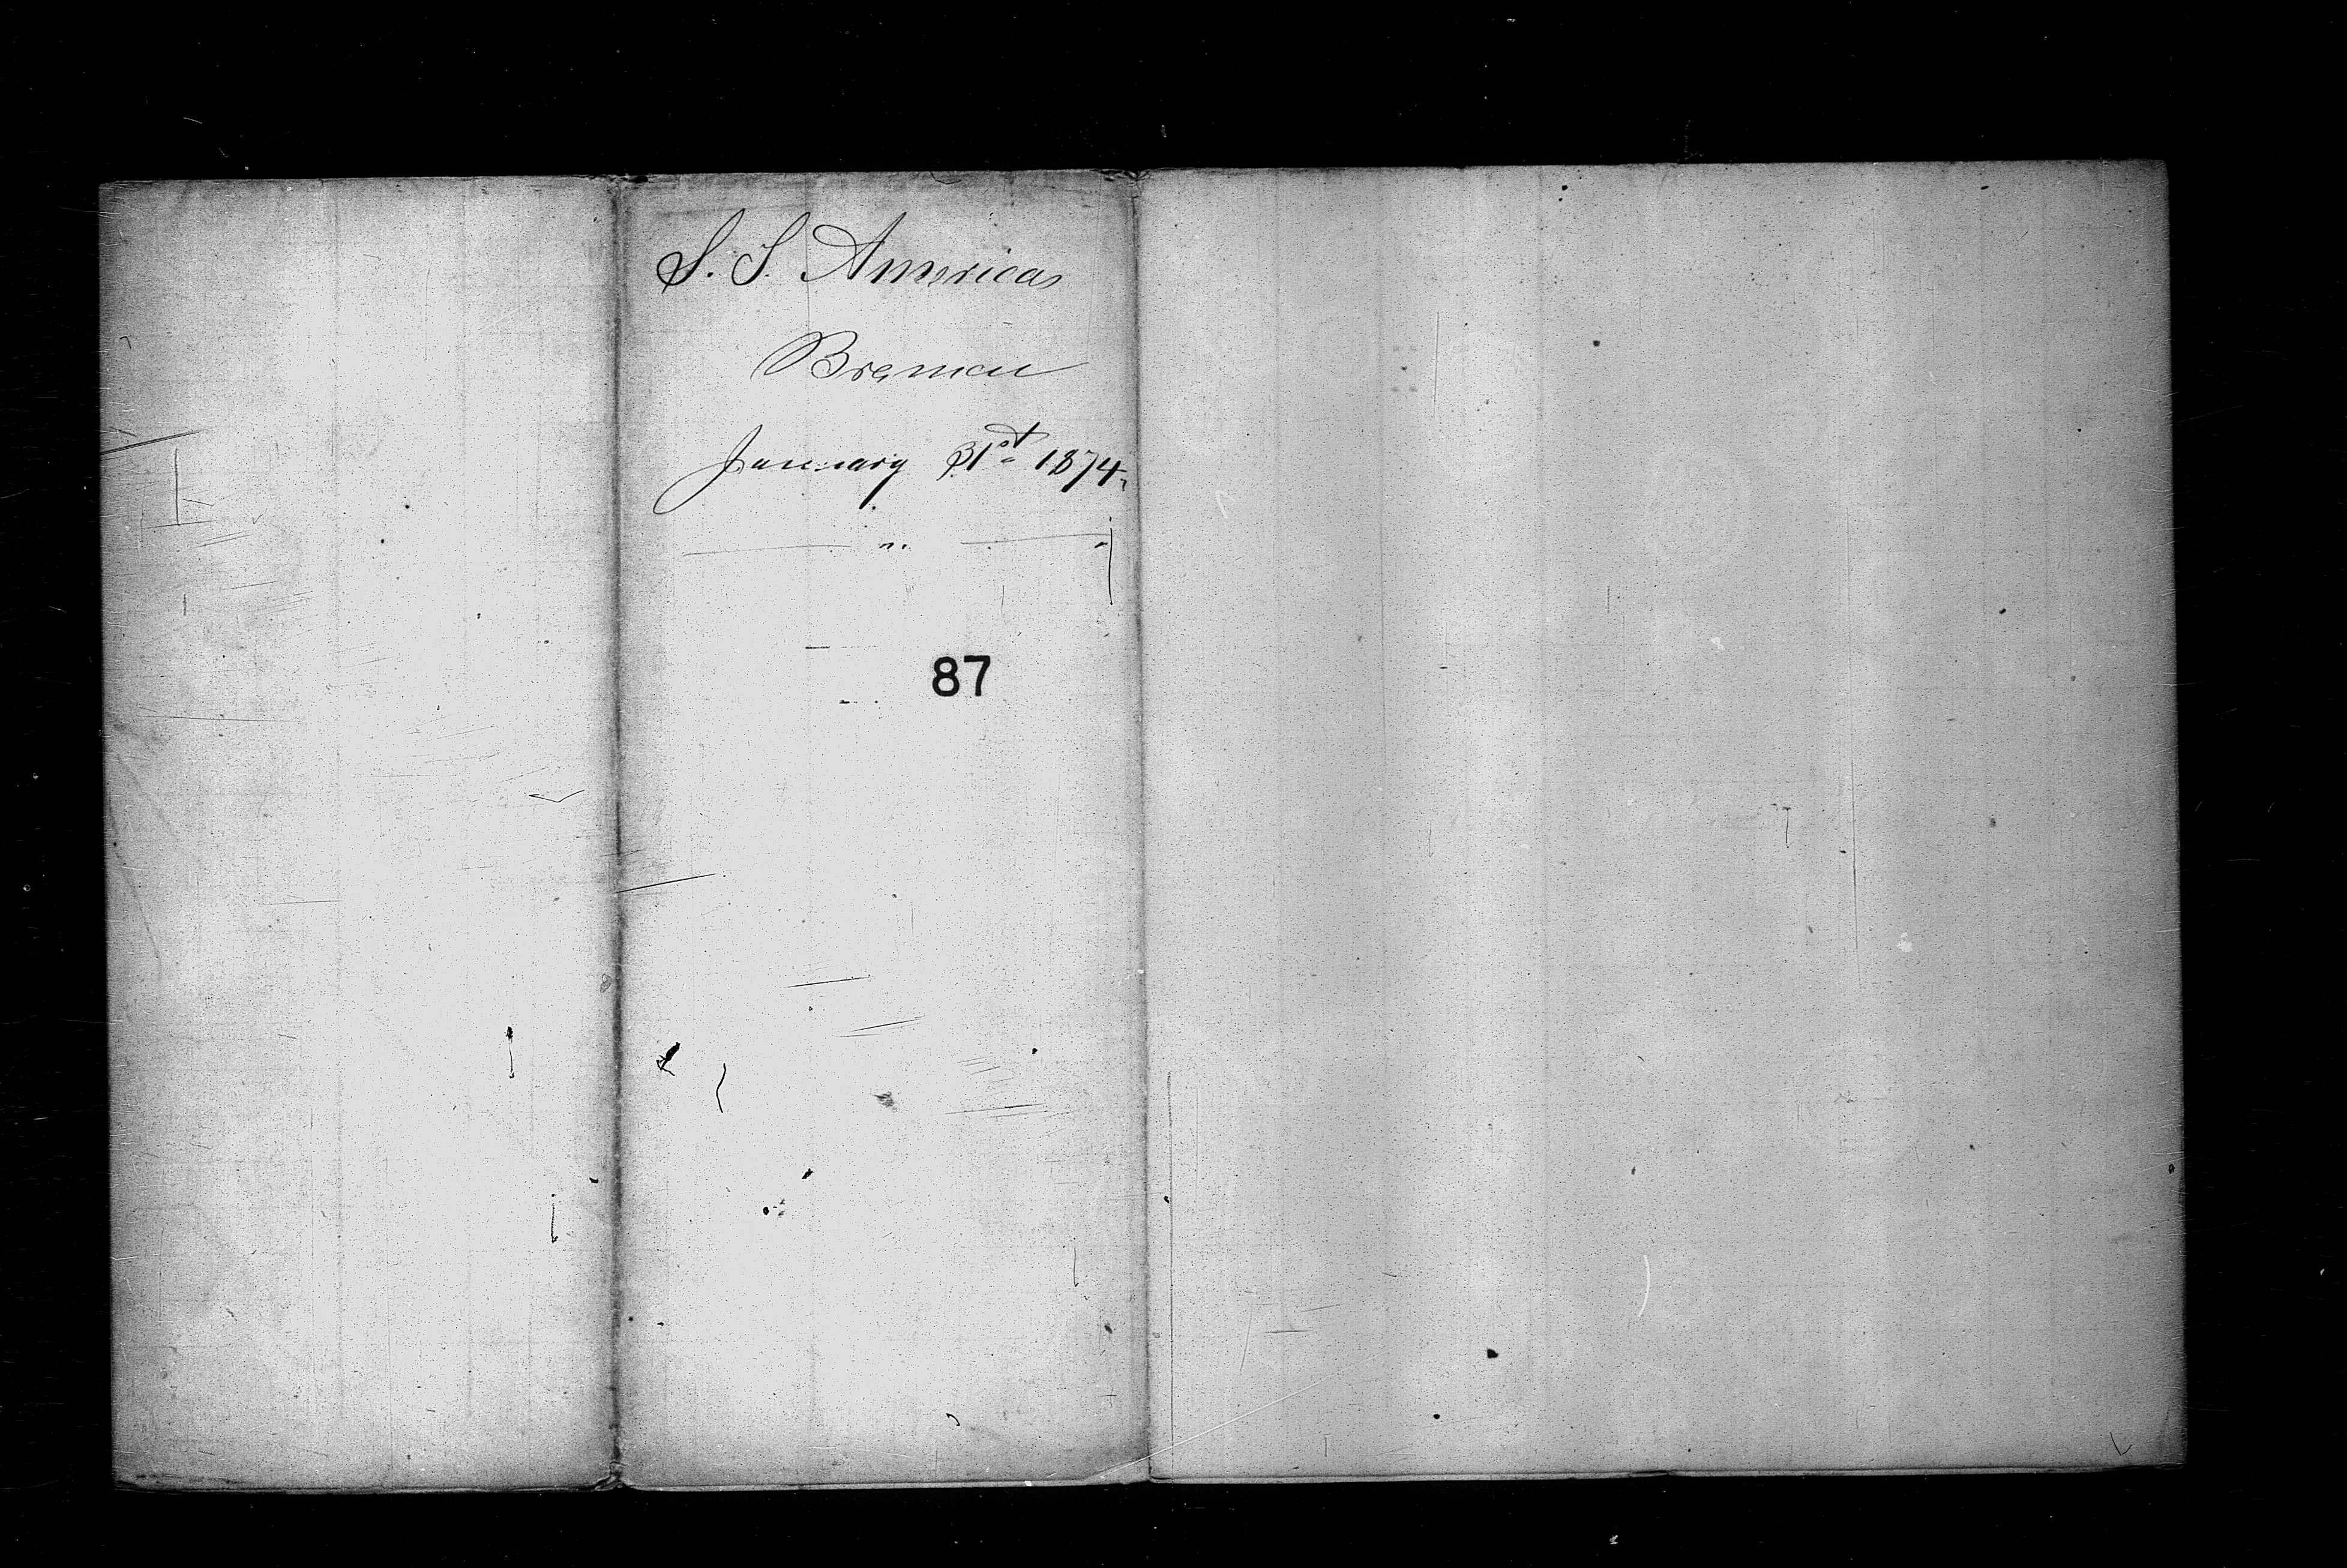 S. S. America
Bremen
January 31st 1874.
87